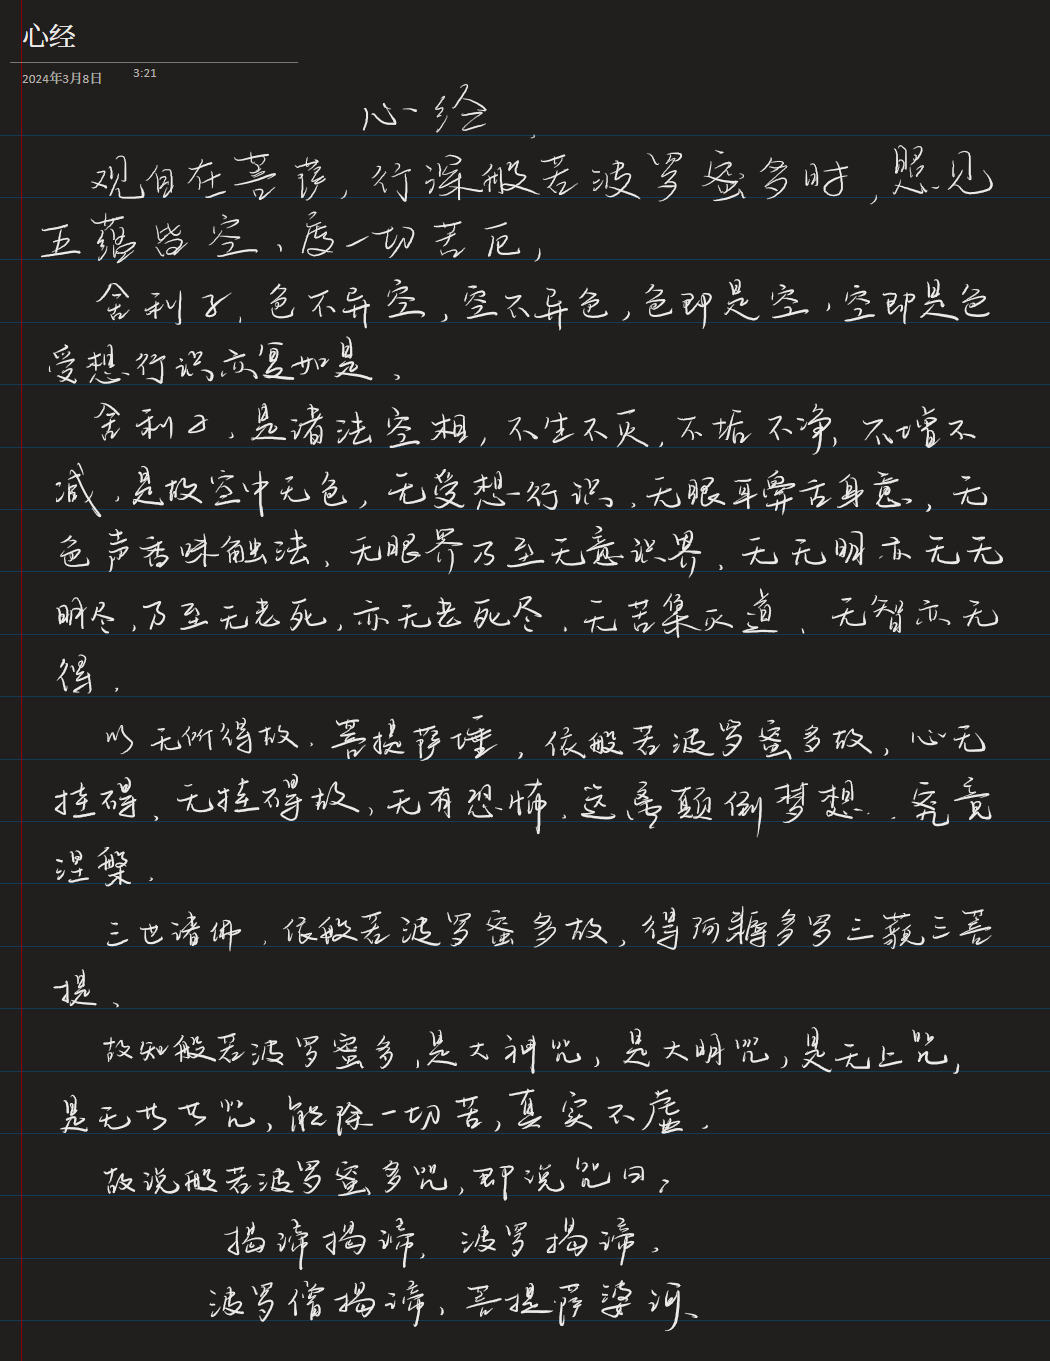 心经
2024年3月8日 3:21
心经
观自在菩萨，行深般若波罗蜜多时，照见
五蕴皆空、度一切苦厄，
舍利子，色不异空，空不异色，色即是空，空即是色
受想行识亦复如是、
舍利子，是诸法空相，不生不灭，不垢不净，不增不
减，是故空中无色，无受想行识，无眼耳鼻舌身意，无
色声香味触法，无眼界乃至无意识界，无无明亦无无
明尽，乃至无老死，亦无老死尽，无苦集灭道，无智亦无
得．
以无所得故．菩提萨埵，依般若波罗蜜多故，心无
挂碍、无挂碍故，无有恐怖．远离颠倒梦想．．究竟
涅槃．
三世诸佛．依般若波罗蜜多故，得阿耨多罗三藐三菩
提、
故知般若波罗蜜多，是大神咒，是大明咒，是无上咒，
是无共共咒，能除一切苦，真实不虚．
故说般若波罗蜜多咒，即说咒曰，
揭谛揭谛，波罗揭谛．
波罗僧揭谛，菩提萨婆诃、